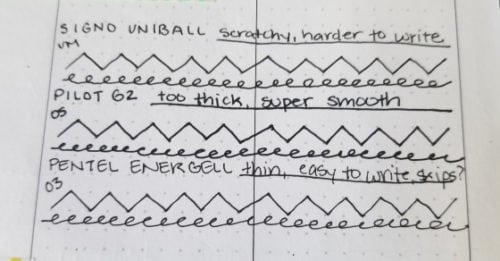 SIGNO UNIBALL scratchy, harder to write
UM1
PILOT G2 too thick, super smooth
05
PENTEL ENERGELL thin, easy to write, skips?
03